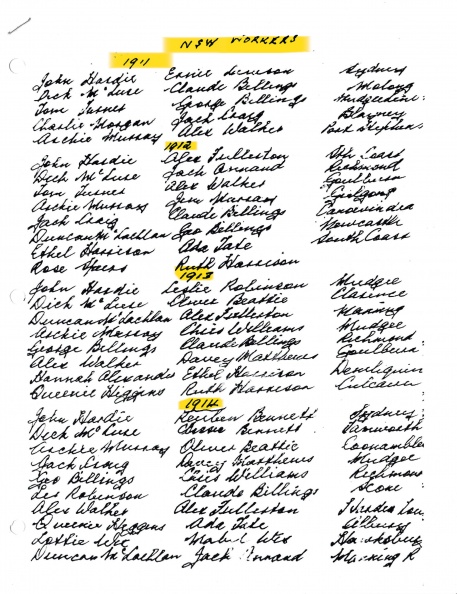 NSW WORKERS
1911
John Hardie Ernie Sydney
Dick McLuse Claude Billings Molong
Tom Turner George Billings
Charlie Horgan Jack Craig Blayney
Archie Murray Alex Walker Port Stephens
1912
John Hardie Alex Fullerton Coast
Dick McLuse Jack Annand Richmond
Tom Turner Alex Walker Goulburn
Archie Murray Jim Murray Gulgong
Jack Craig Claude Billings Canowindra
Duncan McLachlan Geo Billings Newcastle
Ethel Harrison Ada Tate South Coast
Rose Ruth Harrison
1913
John Hardie Leslie Robinson Mudgee
Dick McLuse Oliver Beattie Clarence
Duncan McLachlan Alex Fullerton Manning
Archie Murray Chris Williams Mudgee
George Billings Claude Billings Richmond
Alex Walker Davey Matthews Goulburn
Hannah Alexander Ethel Harrison Deniliquin
Queenie Higgins Ruth Harrison Culcairn
1914
John Hardie Reuben Bennett Sydney
Dick McLuse Bennett Tamworth
Archie Murray Oliver Beattie Coonamble
Jack Craig Davey Matthews Mudgee
Geo Billings Chris Williams Richmond
Les Robinson Claude Billings Scone
Alex Walker Alex Fullerton
Queenie Higgins Ada Tate
Lottie Mabel
Duncan McLachlan Jack Annand Manning R